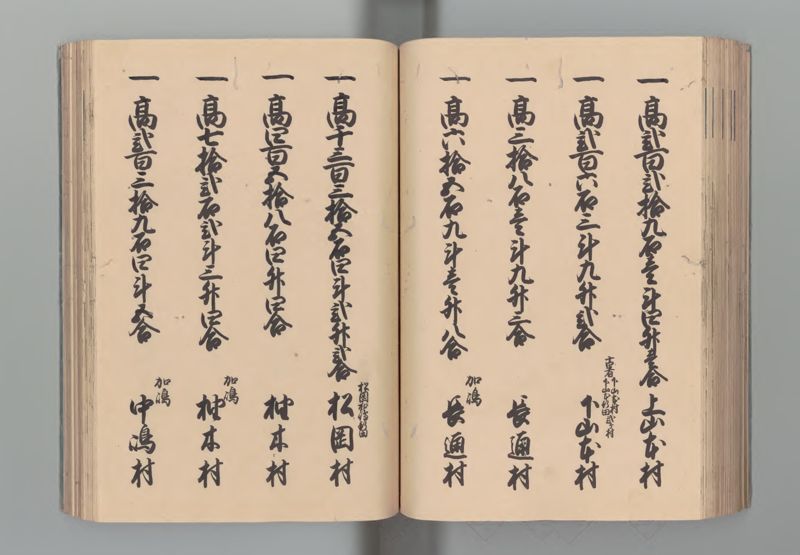 一高弐百弐拾九石壱斗四升壱合 上山本村
一高弐百六石三斗九升弐合 下山本村
一高三拾八石壱斗九升三合 長通村
一高六拾五石九斗壱升八合 加嶋 長通村
一高千三百三拾五石四斗弐升弐合 松岡村
一高四百五拾八石四升四合 柚木村
一高七拾弐石弐斗三升四合 加嶋 柚木村
一高弐百三拾九石四斗五合 加嶋 中嶋村